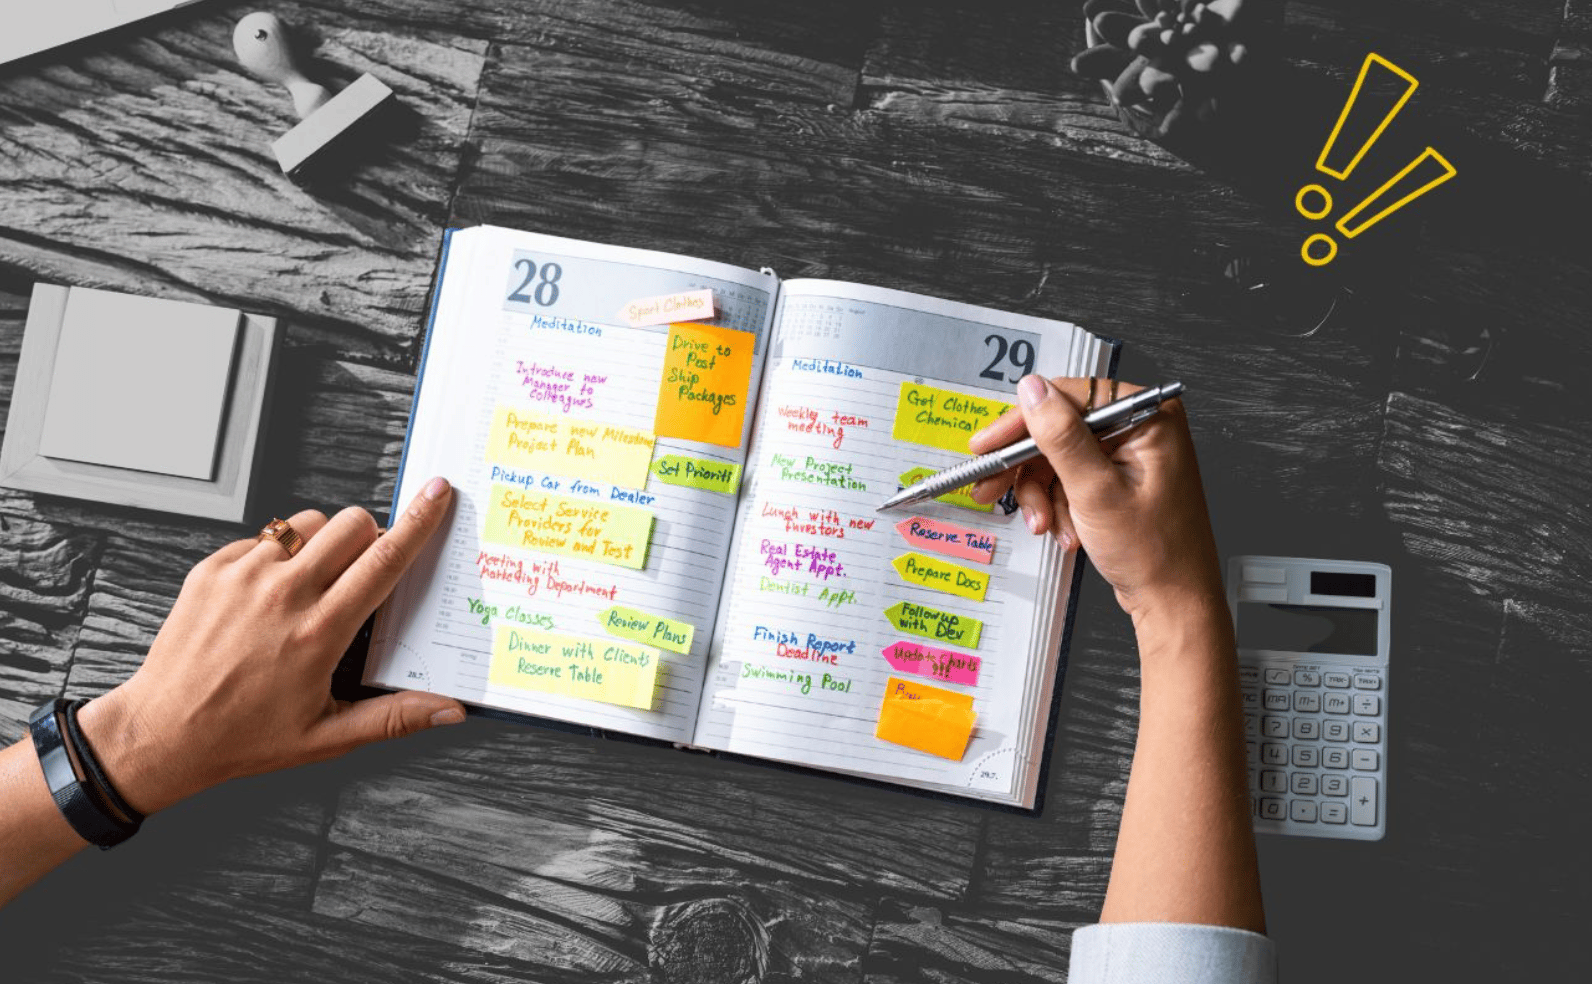 28
Sport Clothes
Meditation
Drive to
Post
Ship
Packages
Introduce new
Manager to
Colleagues
Prepare new Milestone
Project Plan
Set Prioriti
Pickup Car from Dealer
Select Service
Providers for
Review and Test
Meeting with
Marketing Department
Yoga Classes
Review Plans
Dinner with Clients
Reserve Table
28.7.
August
29
Meditation
Get Clothes
Chemical
Weekly team
meeting
New Project
Presentation
Lunch with new
Investors
Reserve Table
Real Estate
Agent Appt.
Prepare Docs
Dentist Appt.
Follow up
with Dev
Finish Report
Deadline
Update Charts
!!!
Swimming Pool
29.7.
%
MR M- M+ ÷
7 8 9 ×
4 5 6 −
1 2 3 +
0 . =